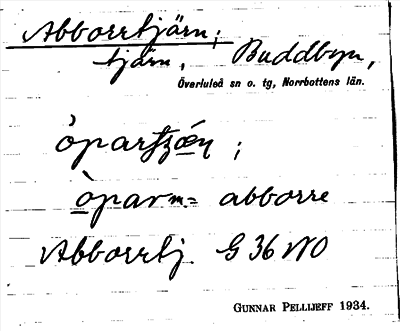 Abborrtjärn;
tjärn, Buddbyn,
Överluleå sn o. tg, Norrbottens län.
;
òpar m= abborre
Abborrtj. G 36 NO
GUNNAR PELLIJEFF 1934.